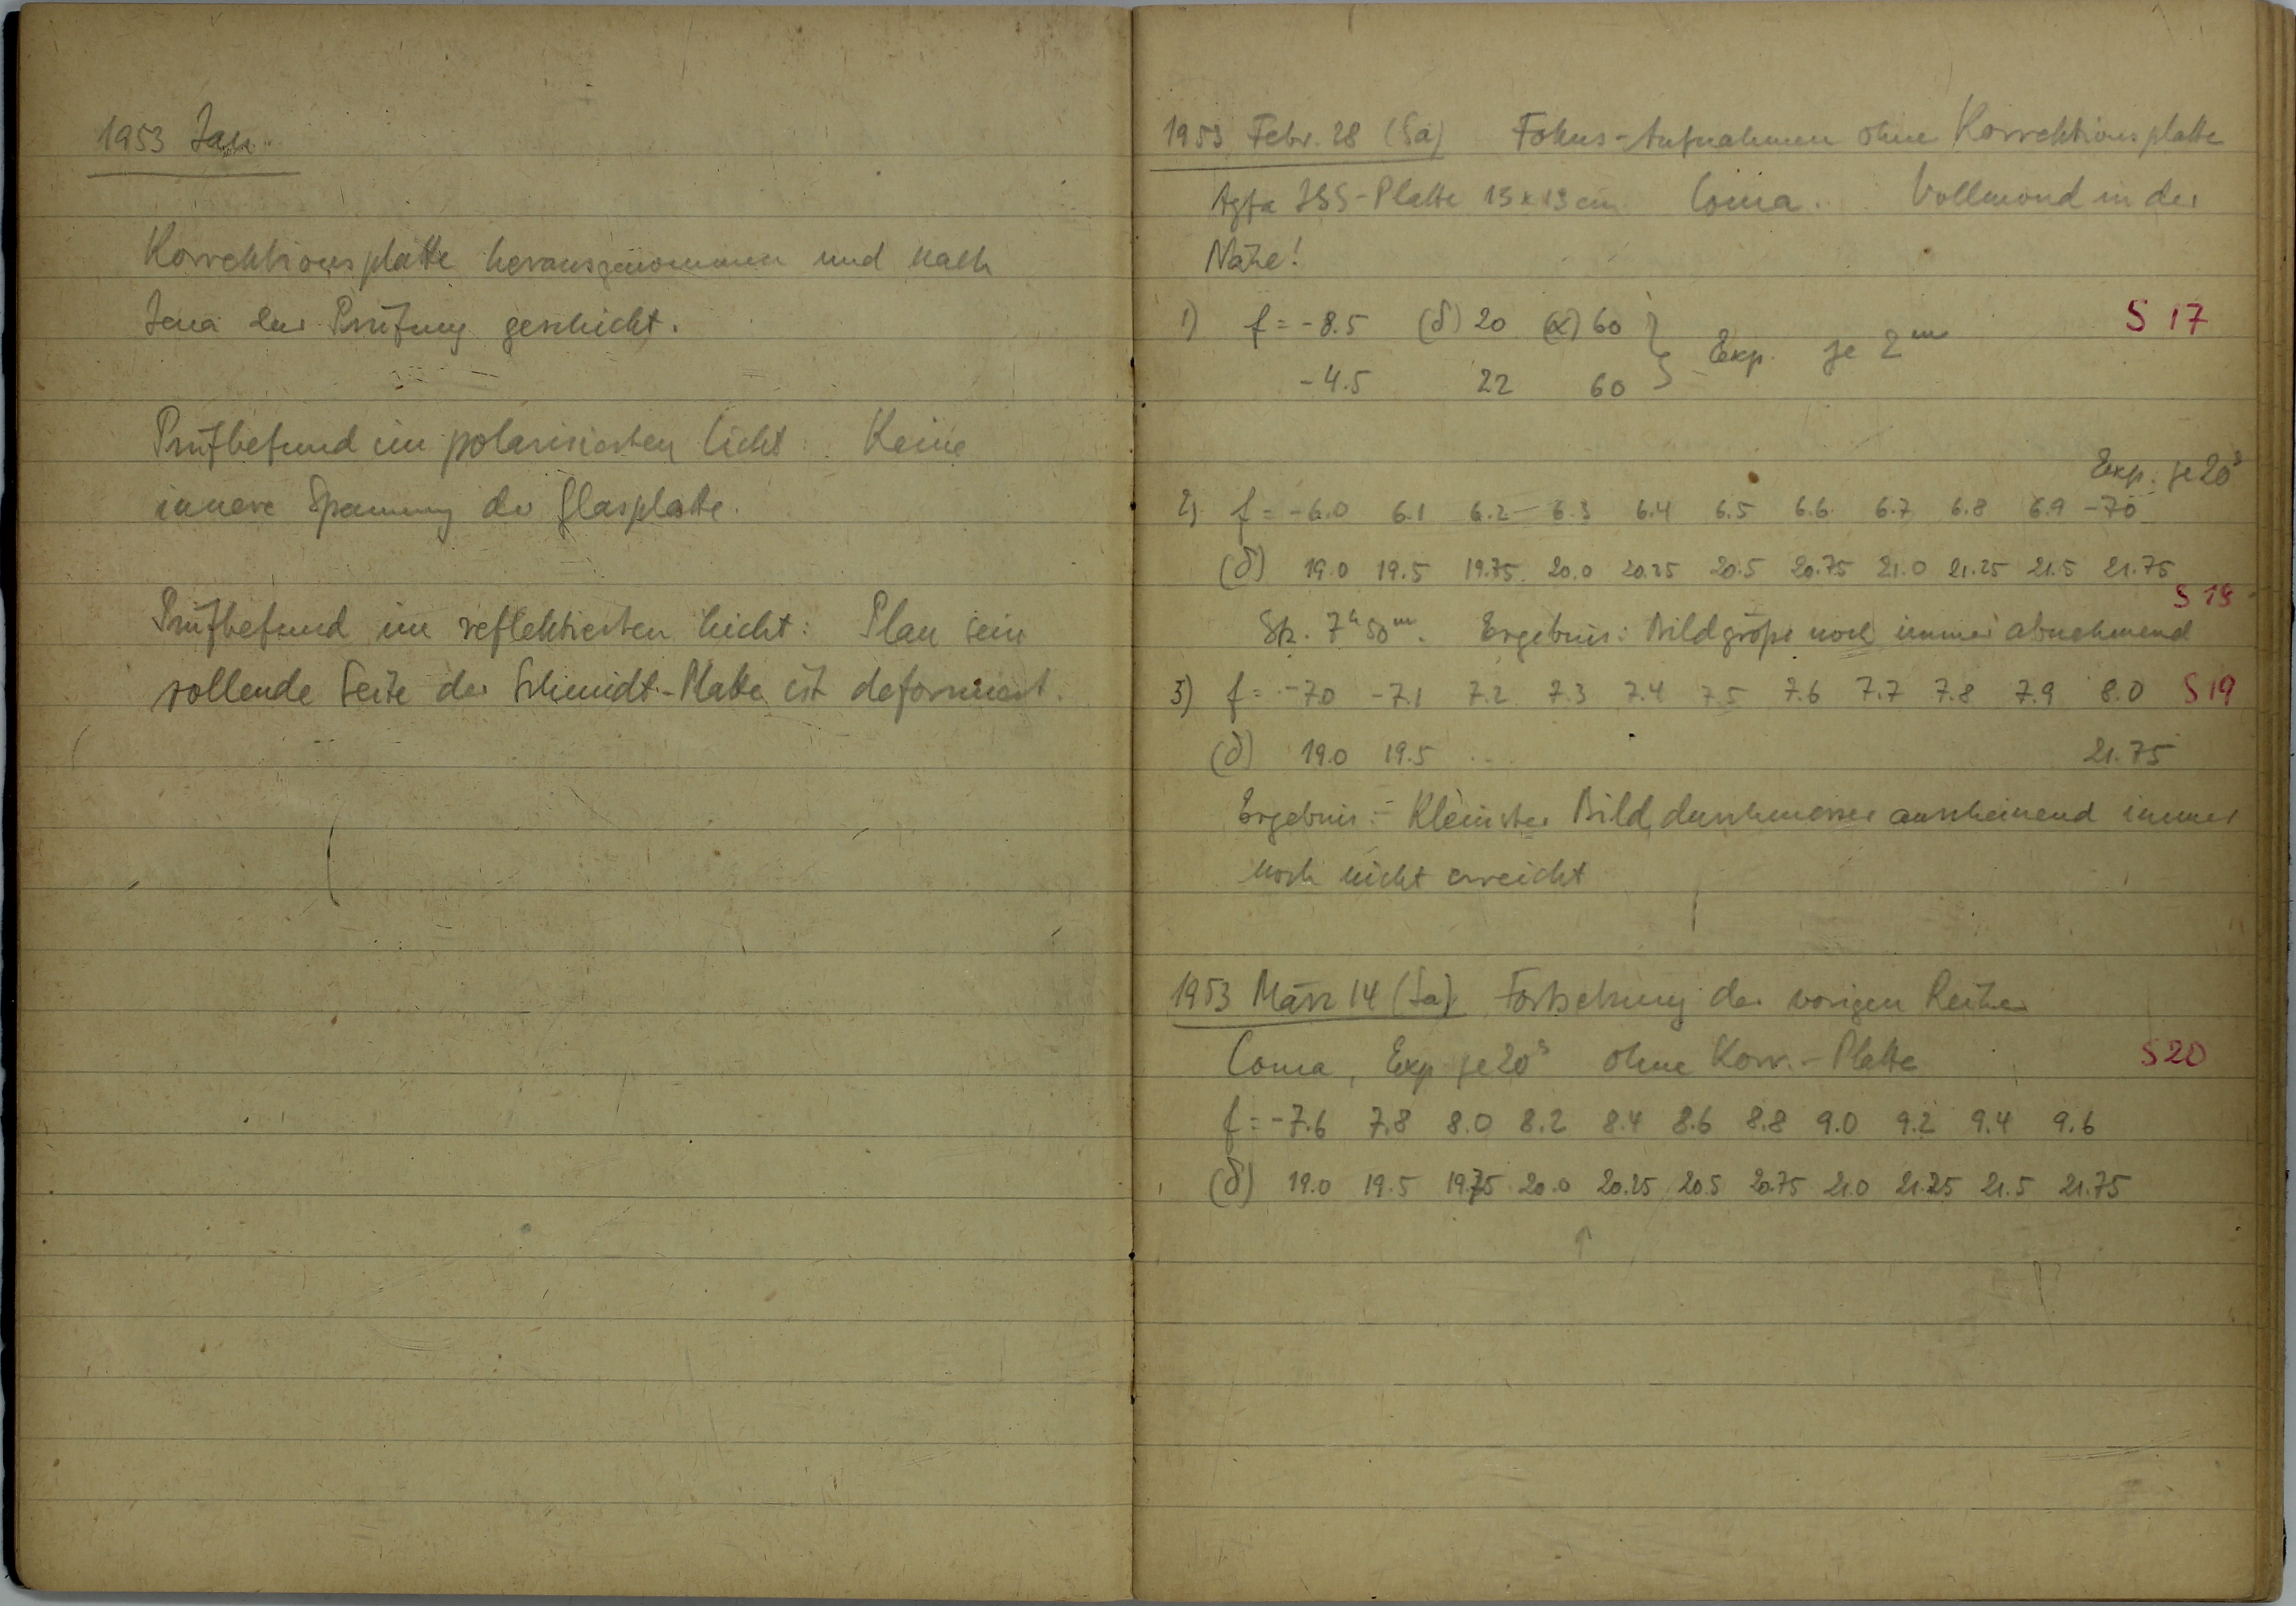 1953 Jan.
Korrektionsplatte herausgenommen und nach
Jena zur Prüfung geschickt.
Prüfbefund im polarisierten Licht: Keine
innere Spannung der Glasplatte.
Prüfbefund im reflektierten Licht: Plan sein
sollende Seite der Schmidt-Platte ist deformiert.
1953 Febr. 28 (Sa) Fokus-Aufnahmen ohne Korrektionsplatte
Agfa ISS-Platte 13 x 13 cm Coma. Vollmond in der
Nähe!
1) f = -8.5 (δ) 20 (α) 60 S 17
-4.5 22 60 } Exp. je 2ᵐ
Exp. je 20ˢ
2) f = -6.0 6.1 6.2 6.3 6.4 6.5 6.6 6.7 6.8 6.9 -7.0
(δ) 19.0 19.5 19.75 20.0 20.25 20.5 20.75 21.0 21.25 21.5 21.75
S 18
Stz. 7ʰ50ᵐ. Ergebnis: Bildgröße noch immer abnehmend
3) f = -7.0 -7.1 7.2 7.3 7.4 7.5 7.6 7.7 7.8 7.9 8.0 S 19
(δ) 19.0 19.5 ... 21.75
Ergebnis: Kleinster Bilddurchmesser anscheinend immer
noch nicht erreicht
1953 März 14 (Sa) Fortsetzung der vorigen Reihe
Coma, Exp je 20ˢ ohne Korr.-Platte S 20
f = -7.6 7.8 8.0 8.2 8.4 8.6 8.8 9.0 9.2 9.4 9.6
(δ) 19.0 19.5 19.75 20.0 20.25 20.5 20.75 21.0 21.25 21.5 21.75
↑